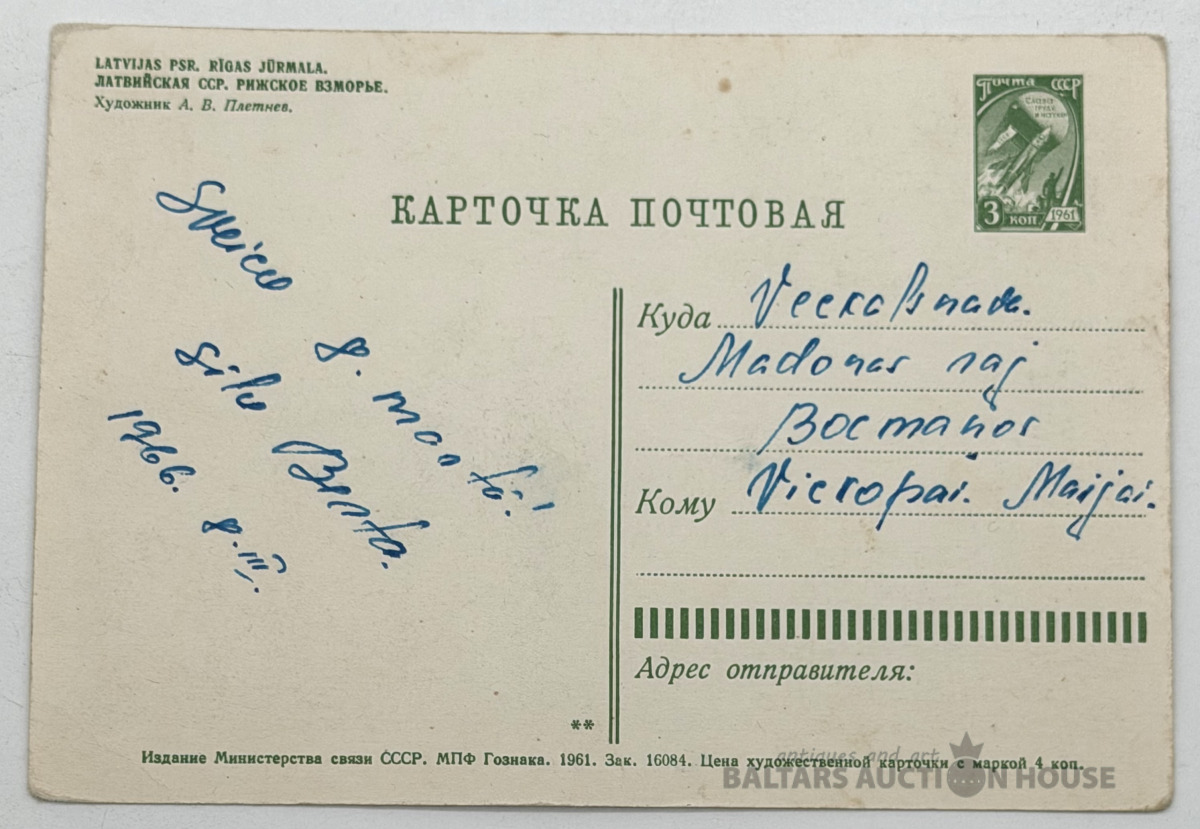 LATVIJAS PSR. RĪGAS JŪRMALA.
ЛАТВИЙСКАЯ ССР. РИЖСКОЕ ВЗМОРЬЕ.
Художник А. В. Плетнев.
Почта СССР
СЛАВА
ТРУДУ
И НАУКЕ
3 КОП 1961
КАРТОЧКА ПОЧТОВАЯ
Sveicu
8. martā!
Berta.
1966. 8. III.
Куда
Madonas raj
Кому Maijai.
Адрес отправителя:
**
Издание Министерства связи СССР. МПФ Гознака. 1961. Зак. 16084. Цена художественной карточки с маркой 4 коп.
antiques and art
BALTARS AUCTION HOUSE